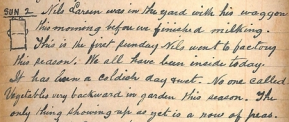 SUN 2. Nils Larson was in the yard with his waggon
this morning before we finished milking.
This is the first sunday Nils went to factory
this season. We all have been inside today.
It has been a coldish day &wet. No one called
Vegetables very backward in garden this season. The
only thing showing up as yet is a row of peas.